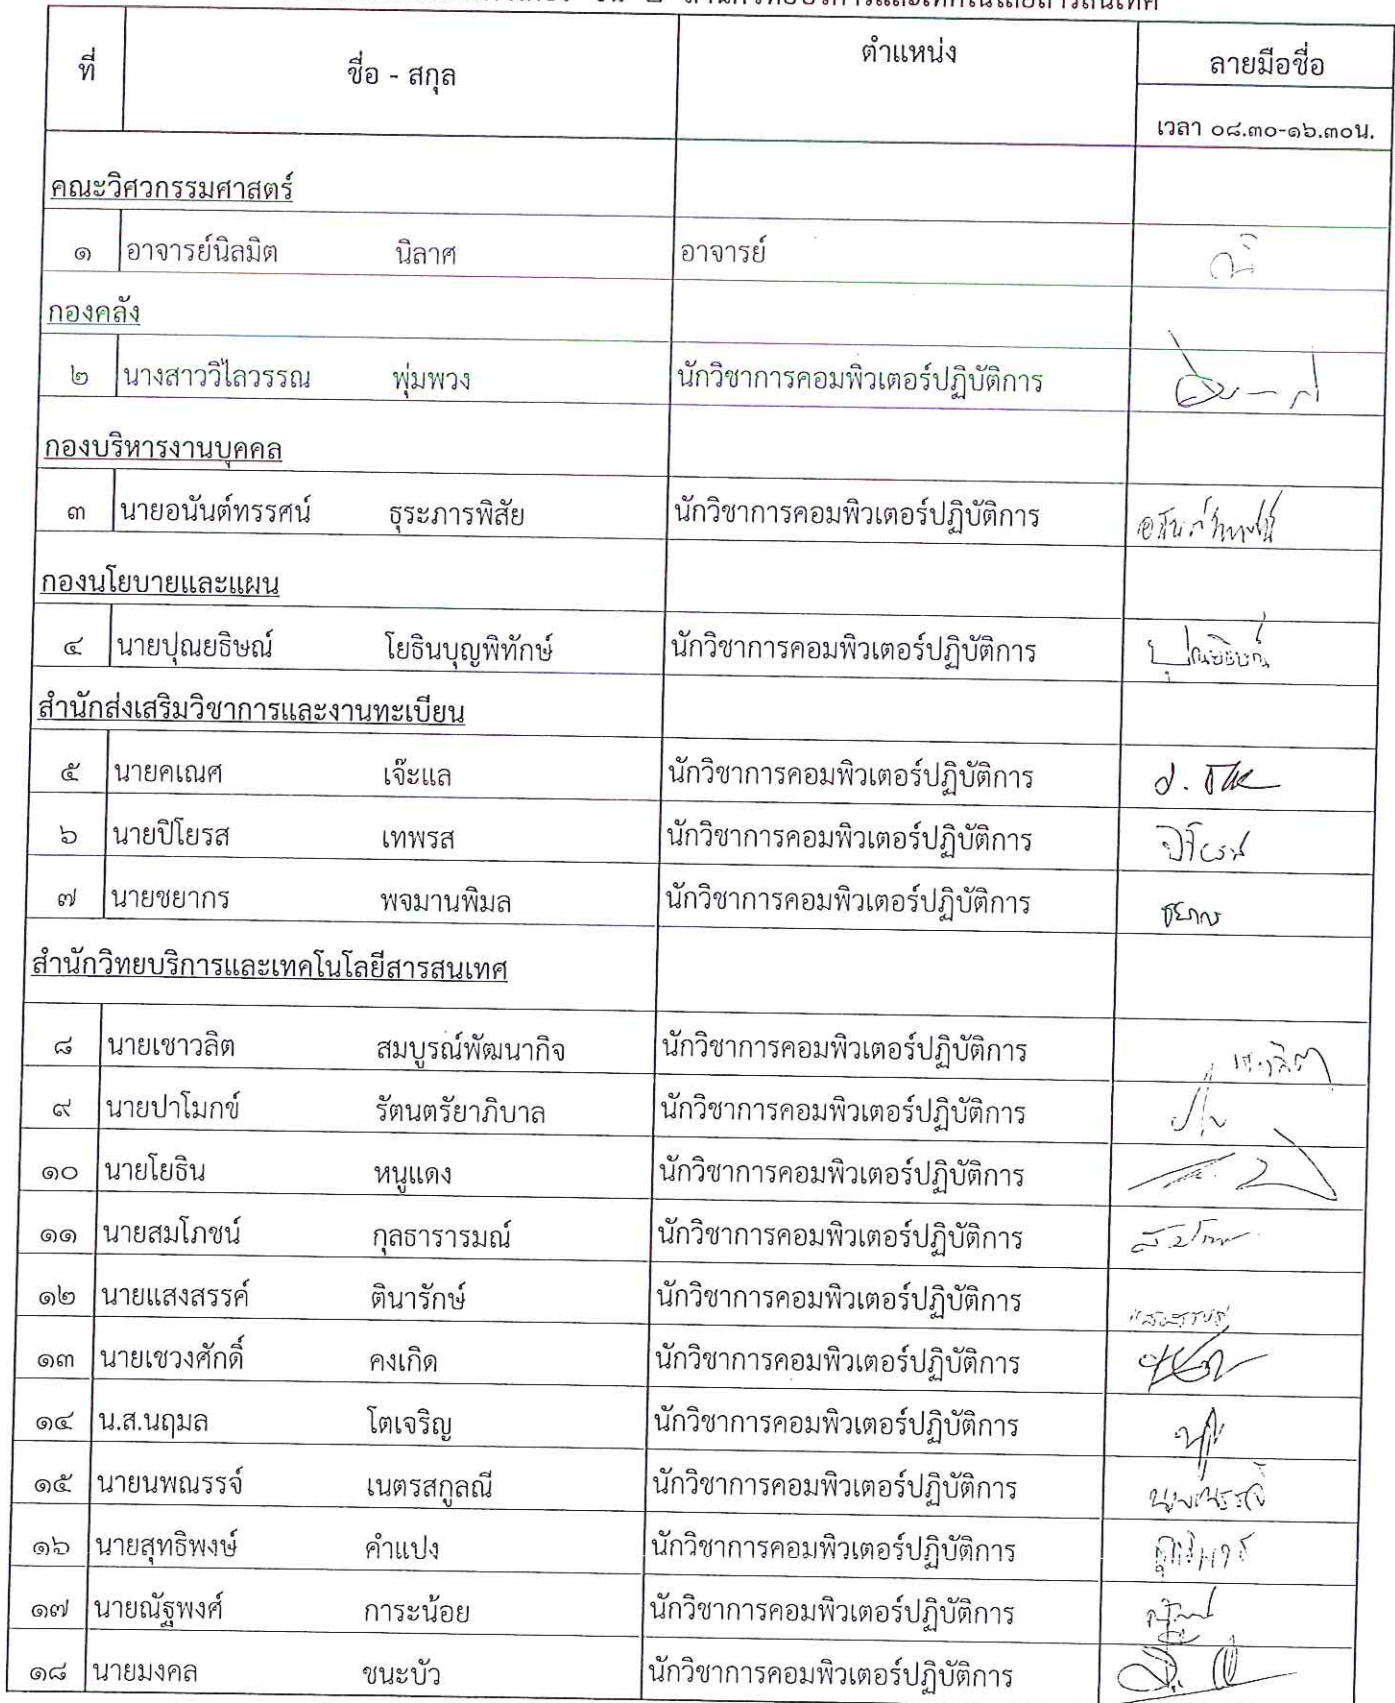 สำนักวิทยบริการและเทคโนโลยีสารสนเทศ
ที่ ชื่อ - สกุล ตำแหน่ง ลายมือชื่อ
เวลา ๐๘.๓๐-๑๖.๓๐น.
คณะวิศวกรรมศาสตร์
๑ อาจารย์นิลมิต นิลาศ อาจารย์
กองคลัง
๒ นางสาววิไลวรรณ พุ่มพวง นักวิชาการคอมพิวเตอร์ปฏิบัติการ
กองบริหารงานบุคคล
๓ นายอนันต์ทรรศน์ ธุระภารพิสัย นักวิชาการคอมพิวเตอร์ปฏิบัติการ
กองนโยบายและแผน
๔ นายปุณยธิษณ์ โยธินบุญพิทักษ์ นักวิชาการคอมพิวเตอร์ปฏิบัติการ ปุณยธิษณ์
สำนักส่งเสริมวิชาการและงานทะเบียน
๕ นายคเณศ เจ๊ะแล นักวิชาการคอมพิวเตอร์ปฏิบัติการ
๖ นายปิโยรส เทพรส นักวิชาการคอมพิวเตอร์ปฏิบัติการ ปิโยรส
๗ นายชยากร พจมานพิมล นักวิชาการคอมพิวเตอร์ปฏิบัติการ ชยากร
สำนักวิทยบริการและเทคโนโลยีสารสนเทศ
๘ นายเชาวลิต สมบูรณ์พัฒนากิจ นักวิชาการคอมพิวเตอร์ปฏิบัติการ
๙ นายปาโมกข์ รัตนตรัยาภิบาล นักวิชาการคอมพิวเตอร์ปฏิบัติการ
๑๐ นายโยธิน หนูแดง นักวิชาการคอมพิวเตอร์ปฏิบัติการ
๑๑ นายสมโภชน์ กุลธารารมณ์ นักวิชาการคอมพิวเตอร์ปฏิบัติการ
๑๒ นายแสงสรรค์ ตินารักษ์ นักวิชาการคอมพิวเตอร์ปฏิบัติการ
๑๓ นายเชวงศักดิ์ คงเกิด นักวิชาการคอมพิวเตอร์ปฏิบัติการ
๑๔ น.ส.นฤมล โตเจริญ นักวิชาการคอมพิวเตอร์ปฏิบัติการ
๑๕ นายนพณรรจ์ เนตรสกูลณี นักวิชาการคอมพิวเตอร์ปฏิบัติการ
๑๖ นายสุทธิพงษ์ คำแปง นักวิชาการคอมพิวเตอร์ปฏิบัติการ
๑๗ นายณัฐพงศ์ การะน้อย นักวิชาการคอมพิวเตอร์ปฏิบัติการ
๑๘ นายมงคล ชนะบัว นักวิชาการคอมพิวเตอร์ปฏิบัติการ